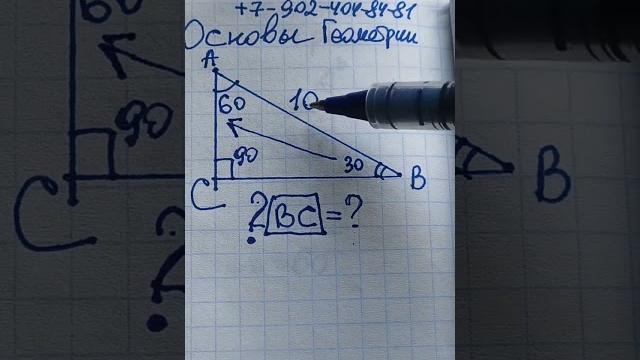 +7-902-404-84-81
Основы Геометрии
A
60
10
90
30
C
B
? BC = ?